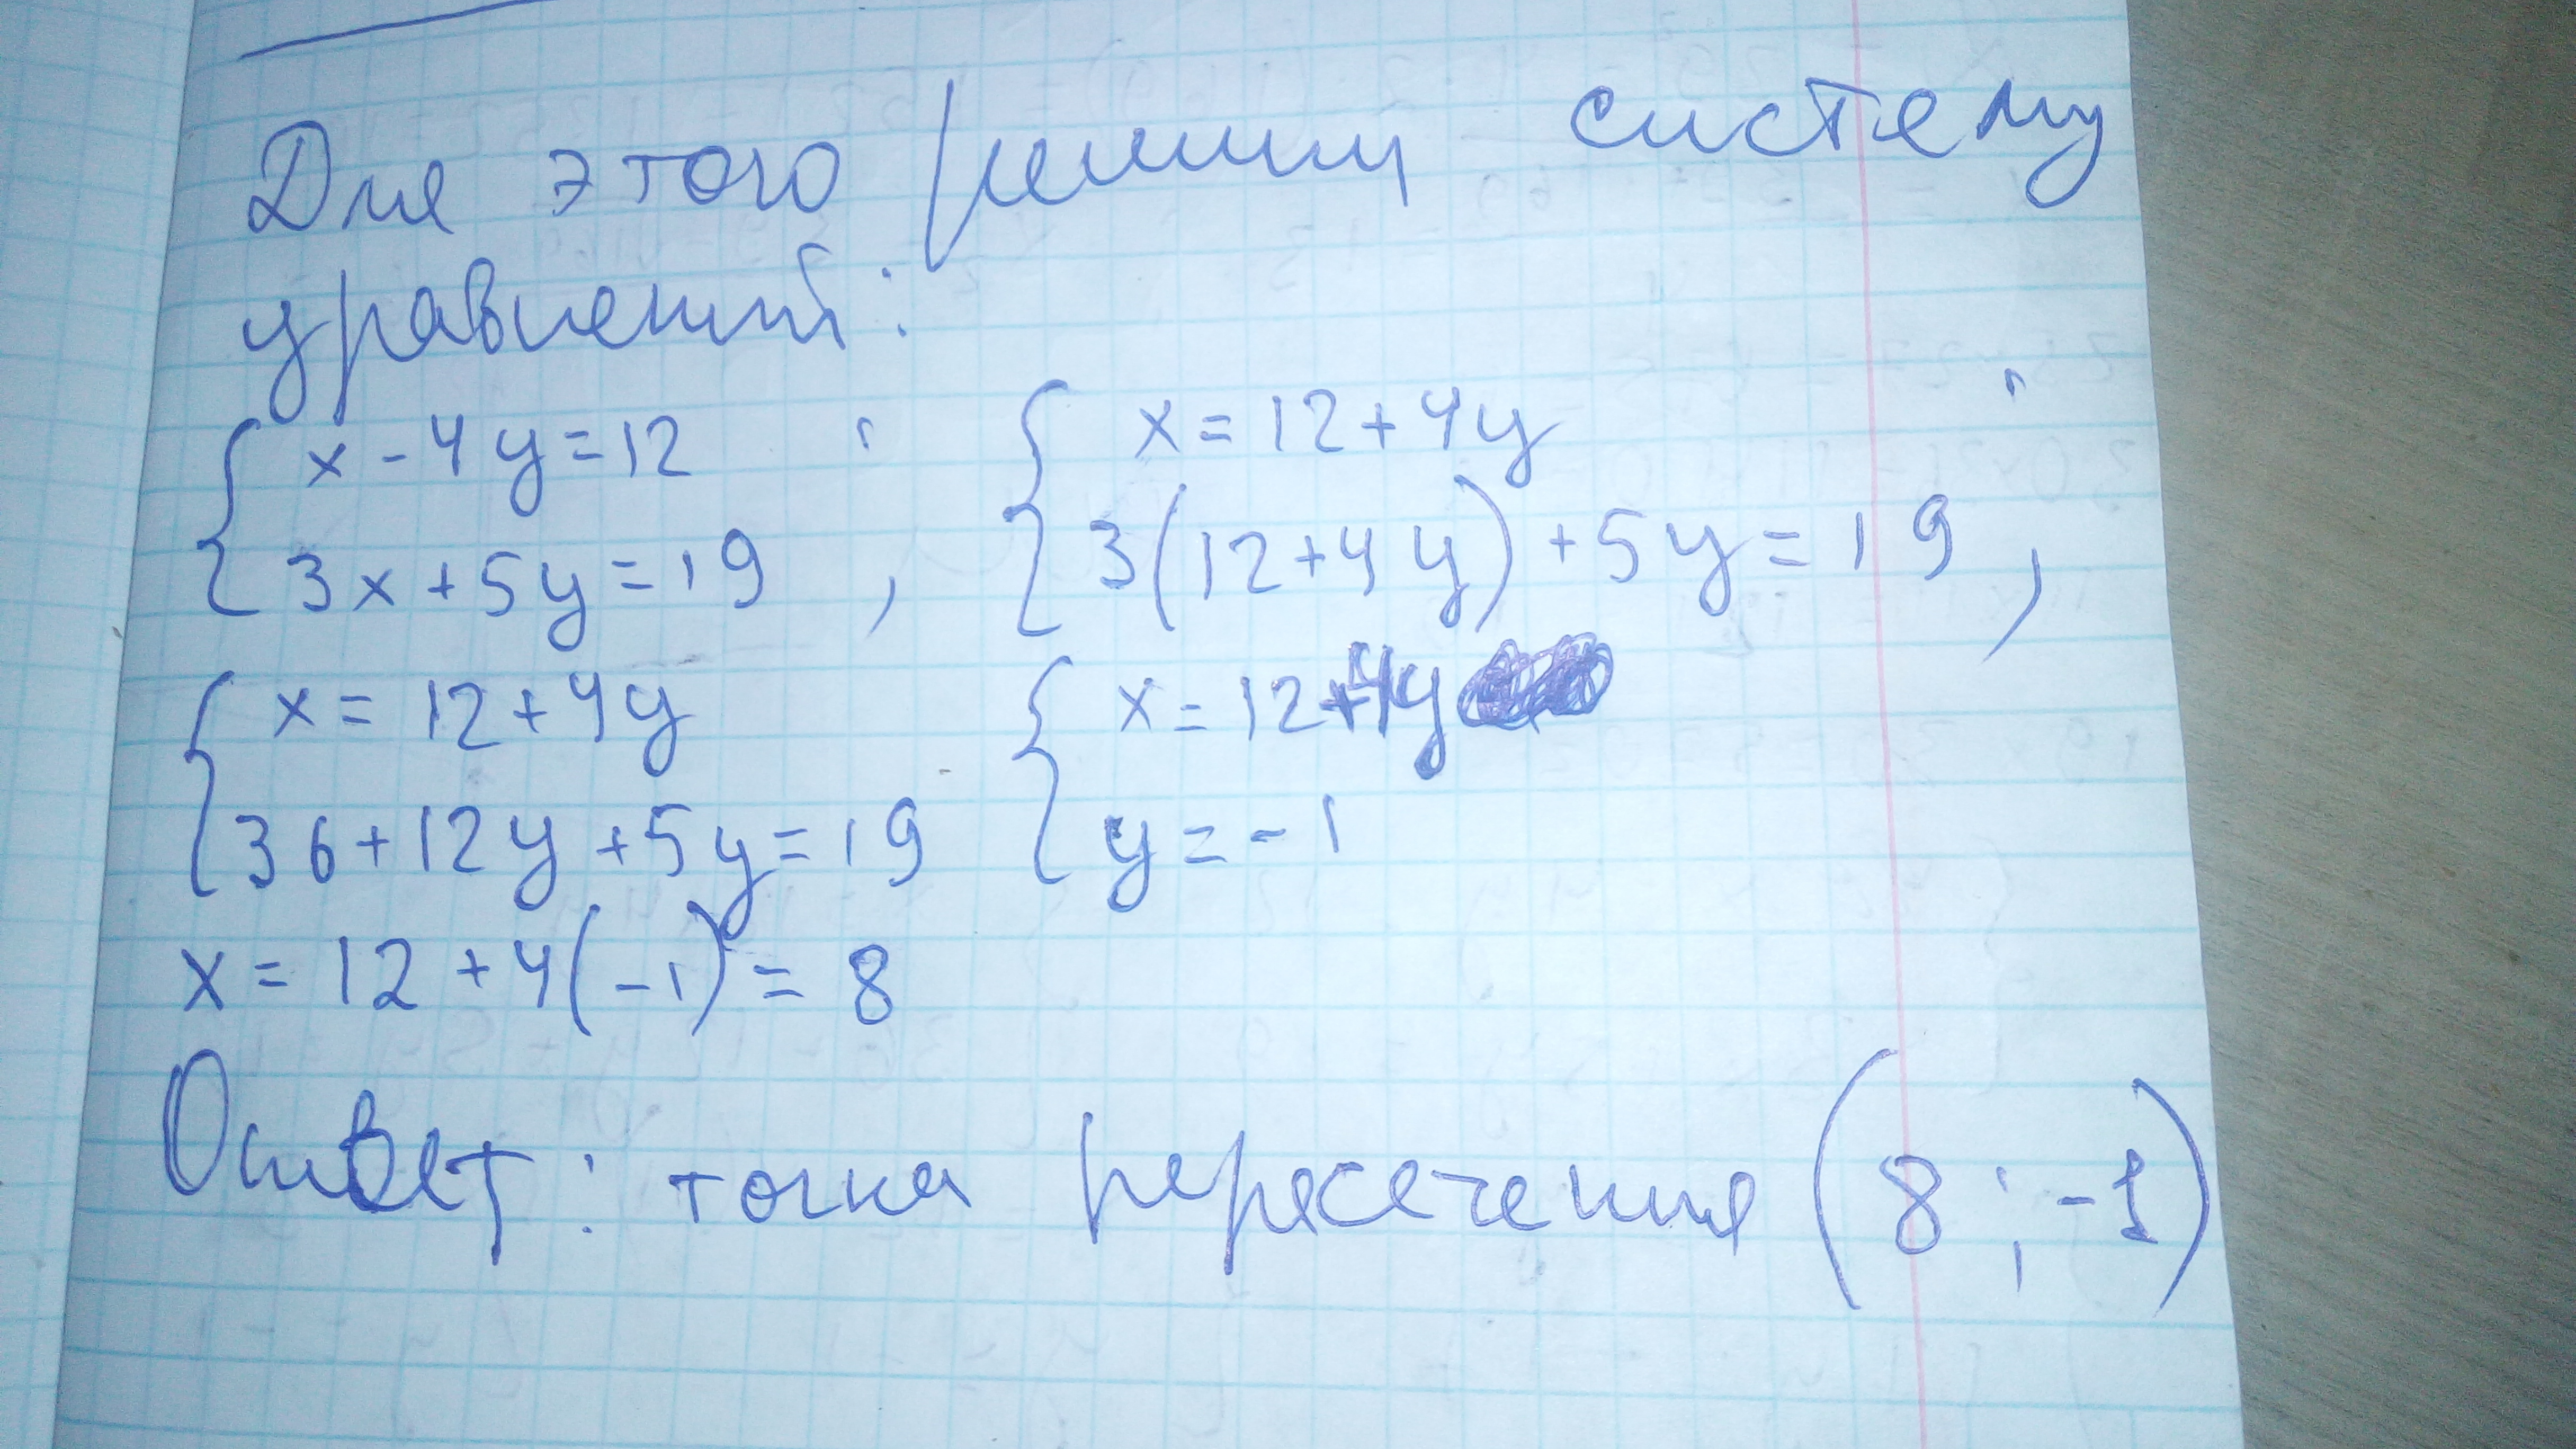 Для этого решим систему
уравнений:
{ x - 4y = 12 ; { x = 12 + 4y ;
{ 3x + 5y = 19 { 3(12 + 4y) + 5y = 19
{ x = 12 + 4y { x = 12 + 4y
{ 36 + 12y + 5y = 19 { y = -1
x = 12 + 4(-1) = 8
Ответ: точка пересечения (8 ; -1)